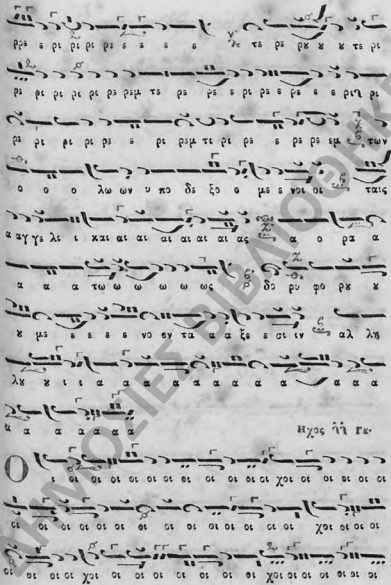 ρρε ε ρι ρι ρι ρε ε ε ε ε τε ρε ρυ υ υ τε ρι
ρε ρι ρι ρι ρε ρεμ τε ρε ρε ε ρι ρε ε ε ε ριλ ρι
ρε ρι ρι ρι ρε ε ρι ρεμ τι ρι ρε ε ρε ρε εμ των
ο ο ο λω ων υ πο δε ξο ο με ε νοι οι ταις
α αγ γε λι ι και αι αι αι αι αι αι αις α ο ρα α
α α α τω ω ω ω ω ως δο ρυ φο ρυ υ
υ με ε ε ε ε νο ον τα α α α ξε ε σι ιν αλ λη
λυ υ ι ι α α α α α α α α α α α α α
α α α α α α α
Ηχος Γα
Ο ι οι οι οι οι οι οι οι οι οι χοι οι οι οι οι
οι οι οι οι οι οι οι οι οι οι χοι οι οι οι οι
οι οι οι χοι οι οι οι οι οι οι οι οι οι οι οι οι
ΔΗΜΟΣΙΕΣ ΒΙΒΛΙΟΘΗΚΕΣ